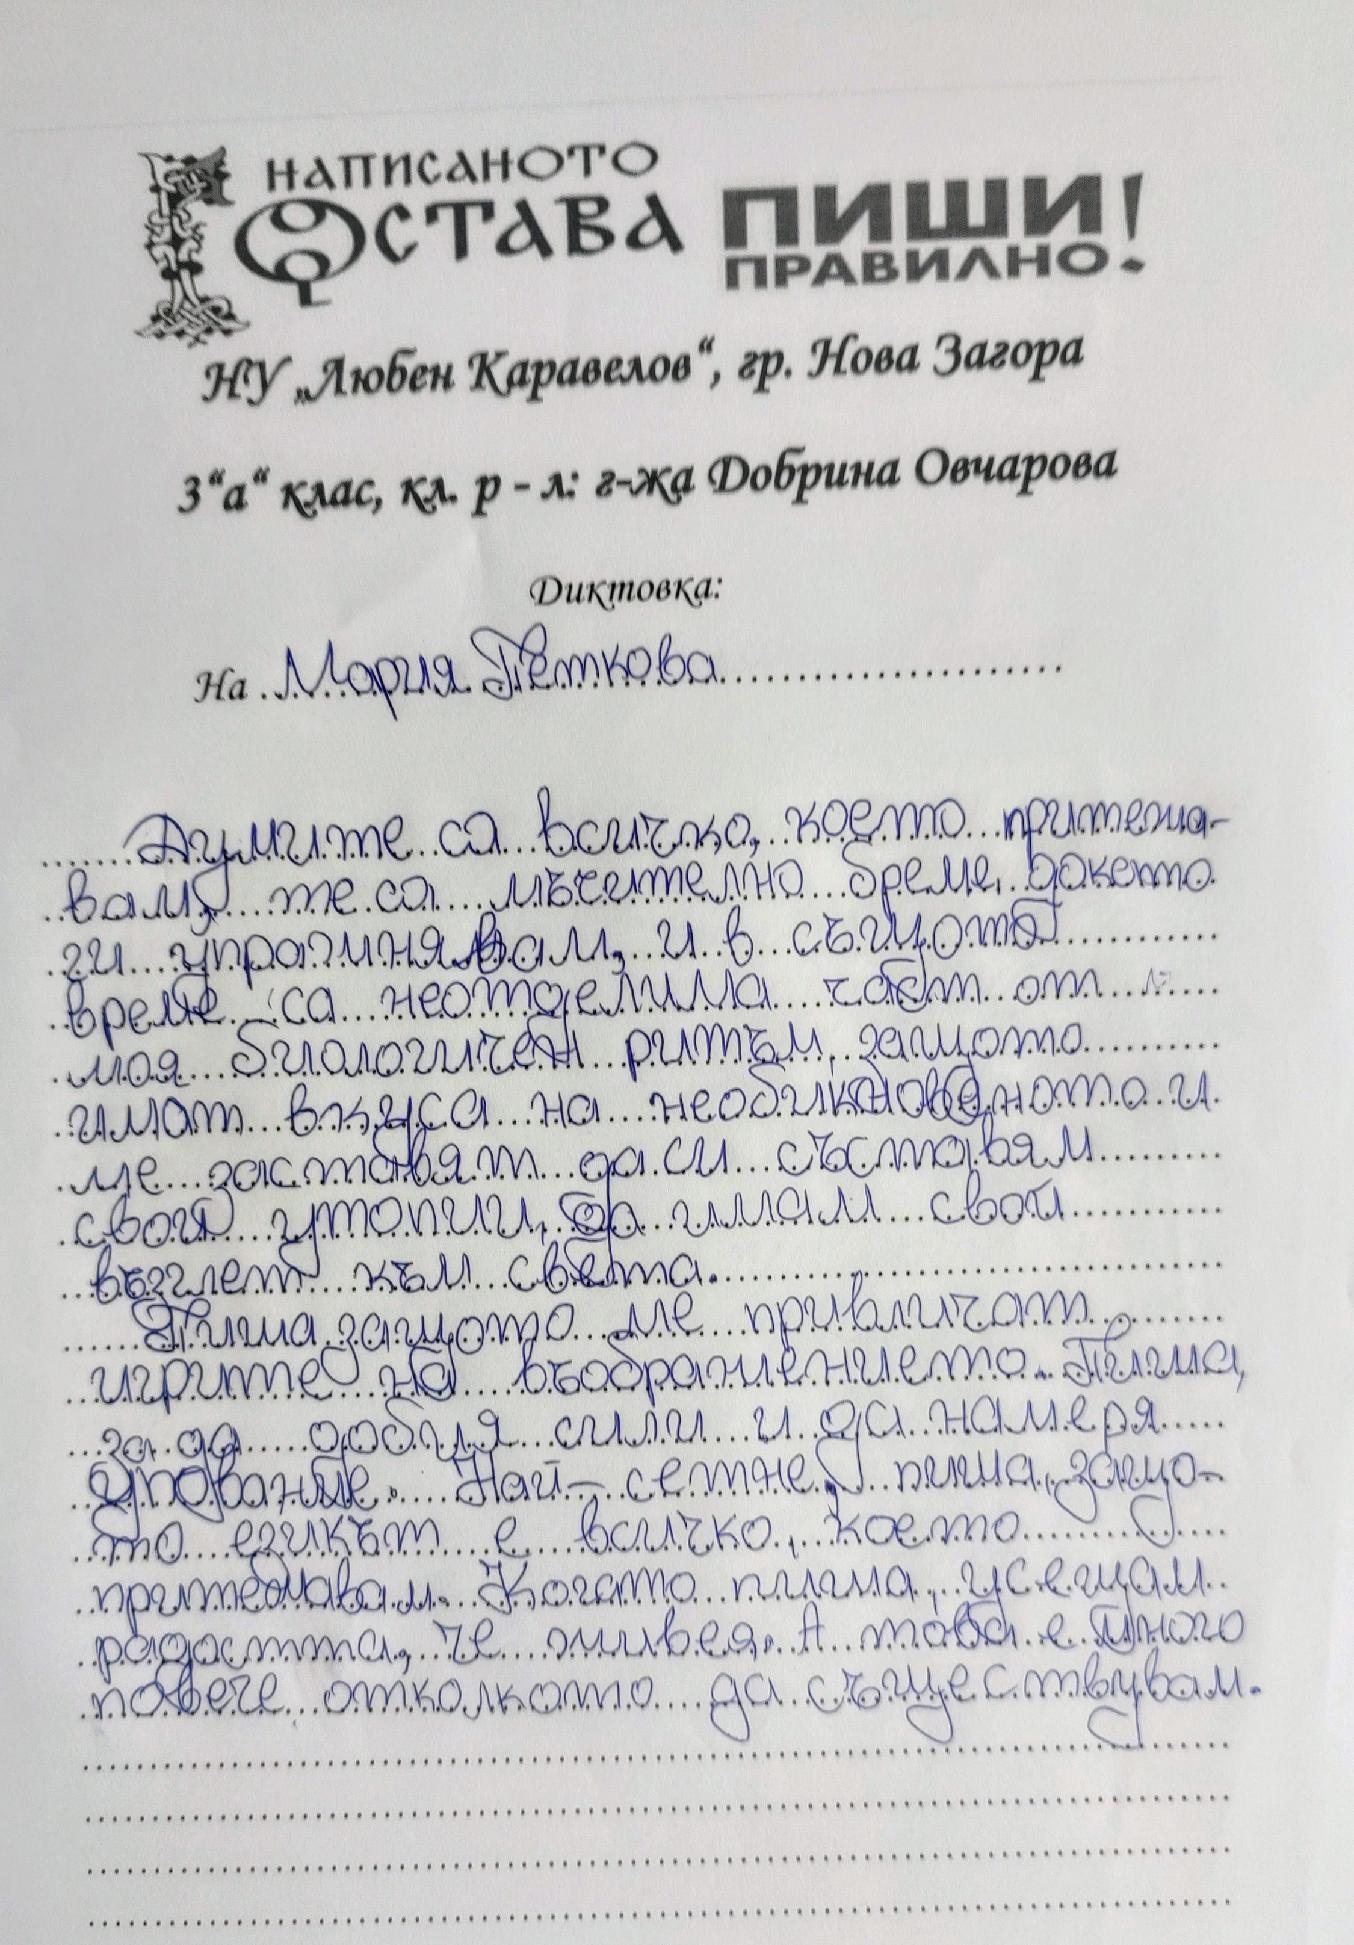 НАПИСАНОТО
ОСТАВА
ПИШИ
ПРАВИЛНО!
НУ „Любен Каравелов“, гр. Нова Загора
3“а“ клас, кл. р - л: г-жа Добрина Овчарова
Диктовка:
На Мария Петкова
Думите са всичко, което притежа-
вам, те са мъчително бреме, докато
ги упражнявам, и в същото
време са неотделима част от
моя биологичен ритъм, защото
имат вкуса на необикновеното и
ме заставят да си съставям
своя утопии, да имам свой
възглет към света.
Пиша защото ме привличат
игрите на въображението. Пиша,
за да добия сили и да намеря
упование. Най-сетне, пиша, защо-
то езикът е всичко, което
притежавам. Когато пиша, усещам
радостта, че живея. А това е много
повече отколкото да съществувам.